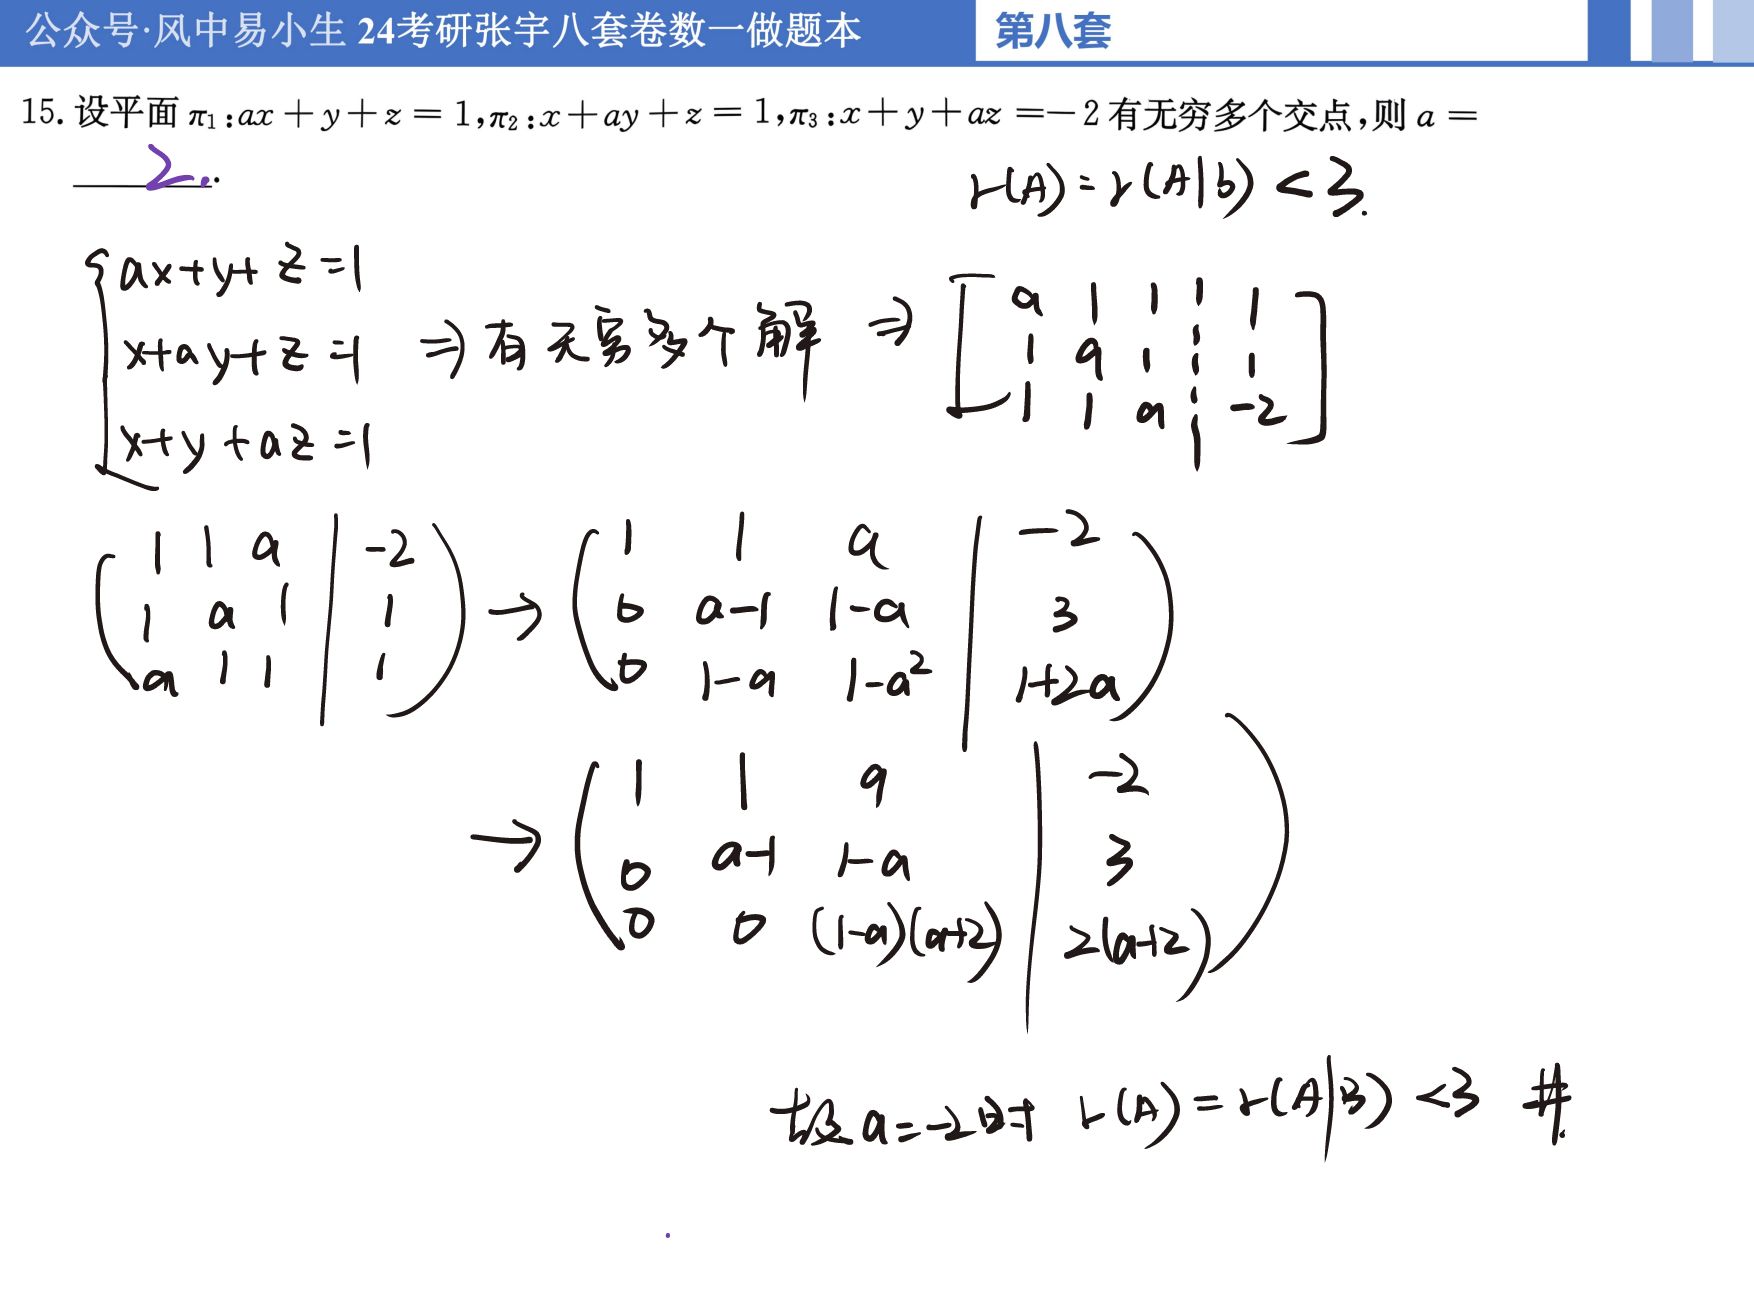 公众号·风中易小生 24考研张宇八套卷数一做题本 第八套
15. 设平面 π₁:ax+y+z=1,π₂:x+ay+z=1,π₃:x+y+az=-2有无穷多个交点,则 a=
2..
r(A)=r(A|b)<3.
{ax+y+z=1
x+ay+z=1 ⇒ 有无穷多个解 ⇒
x+y+az=1
[a 1 1 ¦ 1
1 a 1 ¦ 1
1 1 a ¦ -2]
(1 1 a | -2
1 a 1 | 1
a 1 1 | 1)
→ (1 1 a | -2
0 a-1 1-a | 3
0 1-a 1-a² | 1+2a)
→ (1 1 a | -2
0 a-1 1-a | 3
0 0 (1-a)(a+2) | 2(a+2))
故 a=-2时 r(A)=r(A|B)<3 #.